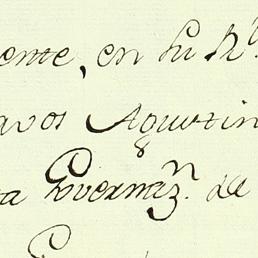 ente, en su R.l
avos Agustin
ta Governaz.n de